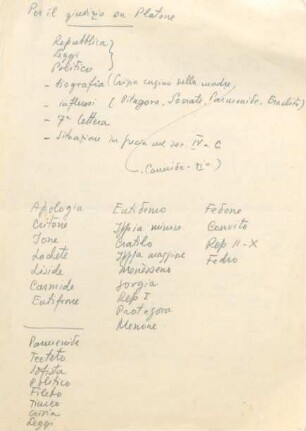 Per il giudizio su Platone
Repubblica
Leggi
Politico
- biografia (Crizia cugino della madre)
- influssi (Pitagora, Socrate, Parmenide, Eraclito)
- 7ª lettera
- situazione in grecia nel sec. IV a C
Apologia
Critone
Ione
Lachete
Liside
Carmide
Eutifrone
Eutidemo
Ippia minore
Cratilo
Ippia maggiore
Menesseno
Gorgia
Rep I
Protagora
Menone
Fedone
Convito
Rep II - X
Fedro
Parmenide
Teeteto
Sofista
Politico
Filebo
Timeo
Crizia
Leggi